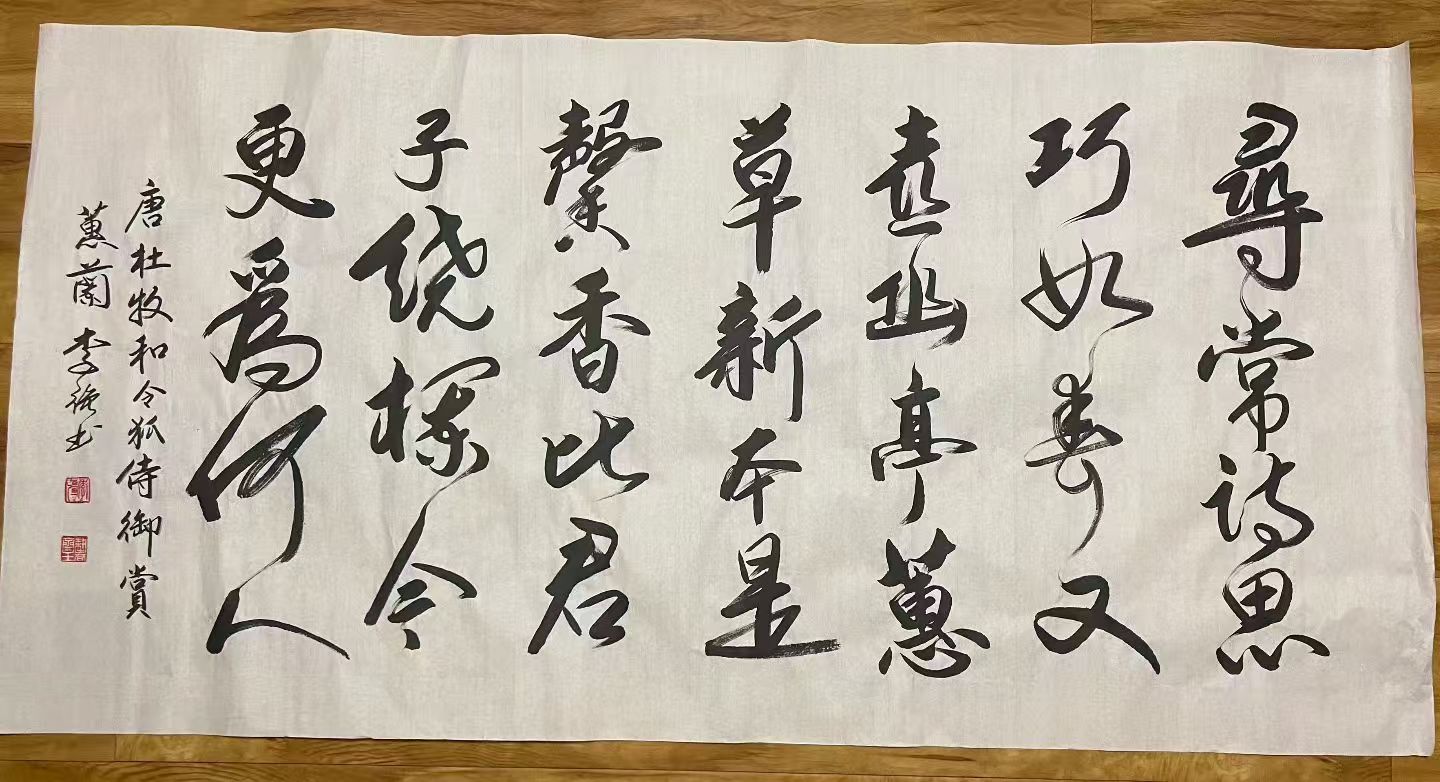 尋常詩思
巧如春又
喜幽亭蕙
草新本是
馨香比君
子绕欄今
更爲何人
唐杜牧和令狐侍御賞
蕙蘭 李强书